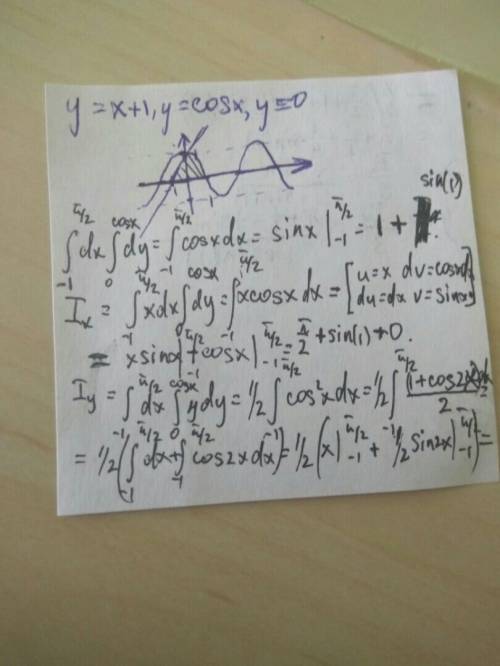 y = x+1, y = cosx, y = 0
-1 1
sin(1)
∫_{-1}^{π/2} dx ∫_0^{cosx} dy = ∫_{-1}^{π/2} cosx dx = sinx |_{-1}^{π/2} = 1 +
I_x = ∫_{-1}^{π/2} x dx ∫_0^{cosx} dy = ∫_{-1}^{π/2} x cosx dx = [u=x dv=cosx dx
du=dx v=sinx]
= x sinx |_{-1}^{π/2} + cosx |_{-1}^{π/2} = π/2 + sin(1) + 0.
I_y = ∫_{-1}^{π/2} dx ∫_0^{cosx} y dy = 1/2 ∫_{-1}^{π/2} cos²x dx = 1/2 ∫_{-1}^{π/2} (1+cos2x)dx / 2
= 1/2 (∫_{-1}^{π/2} dx + ∫_{-1}^{π/2} cos2x dx) = 1/2 (x |_{-1}^{π/2} + 1/2 sin2x |_{-1}^{π/2}) =